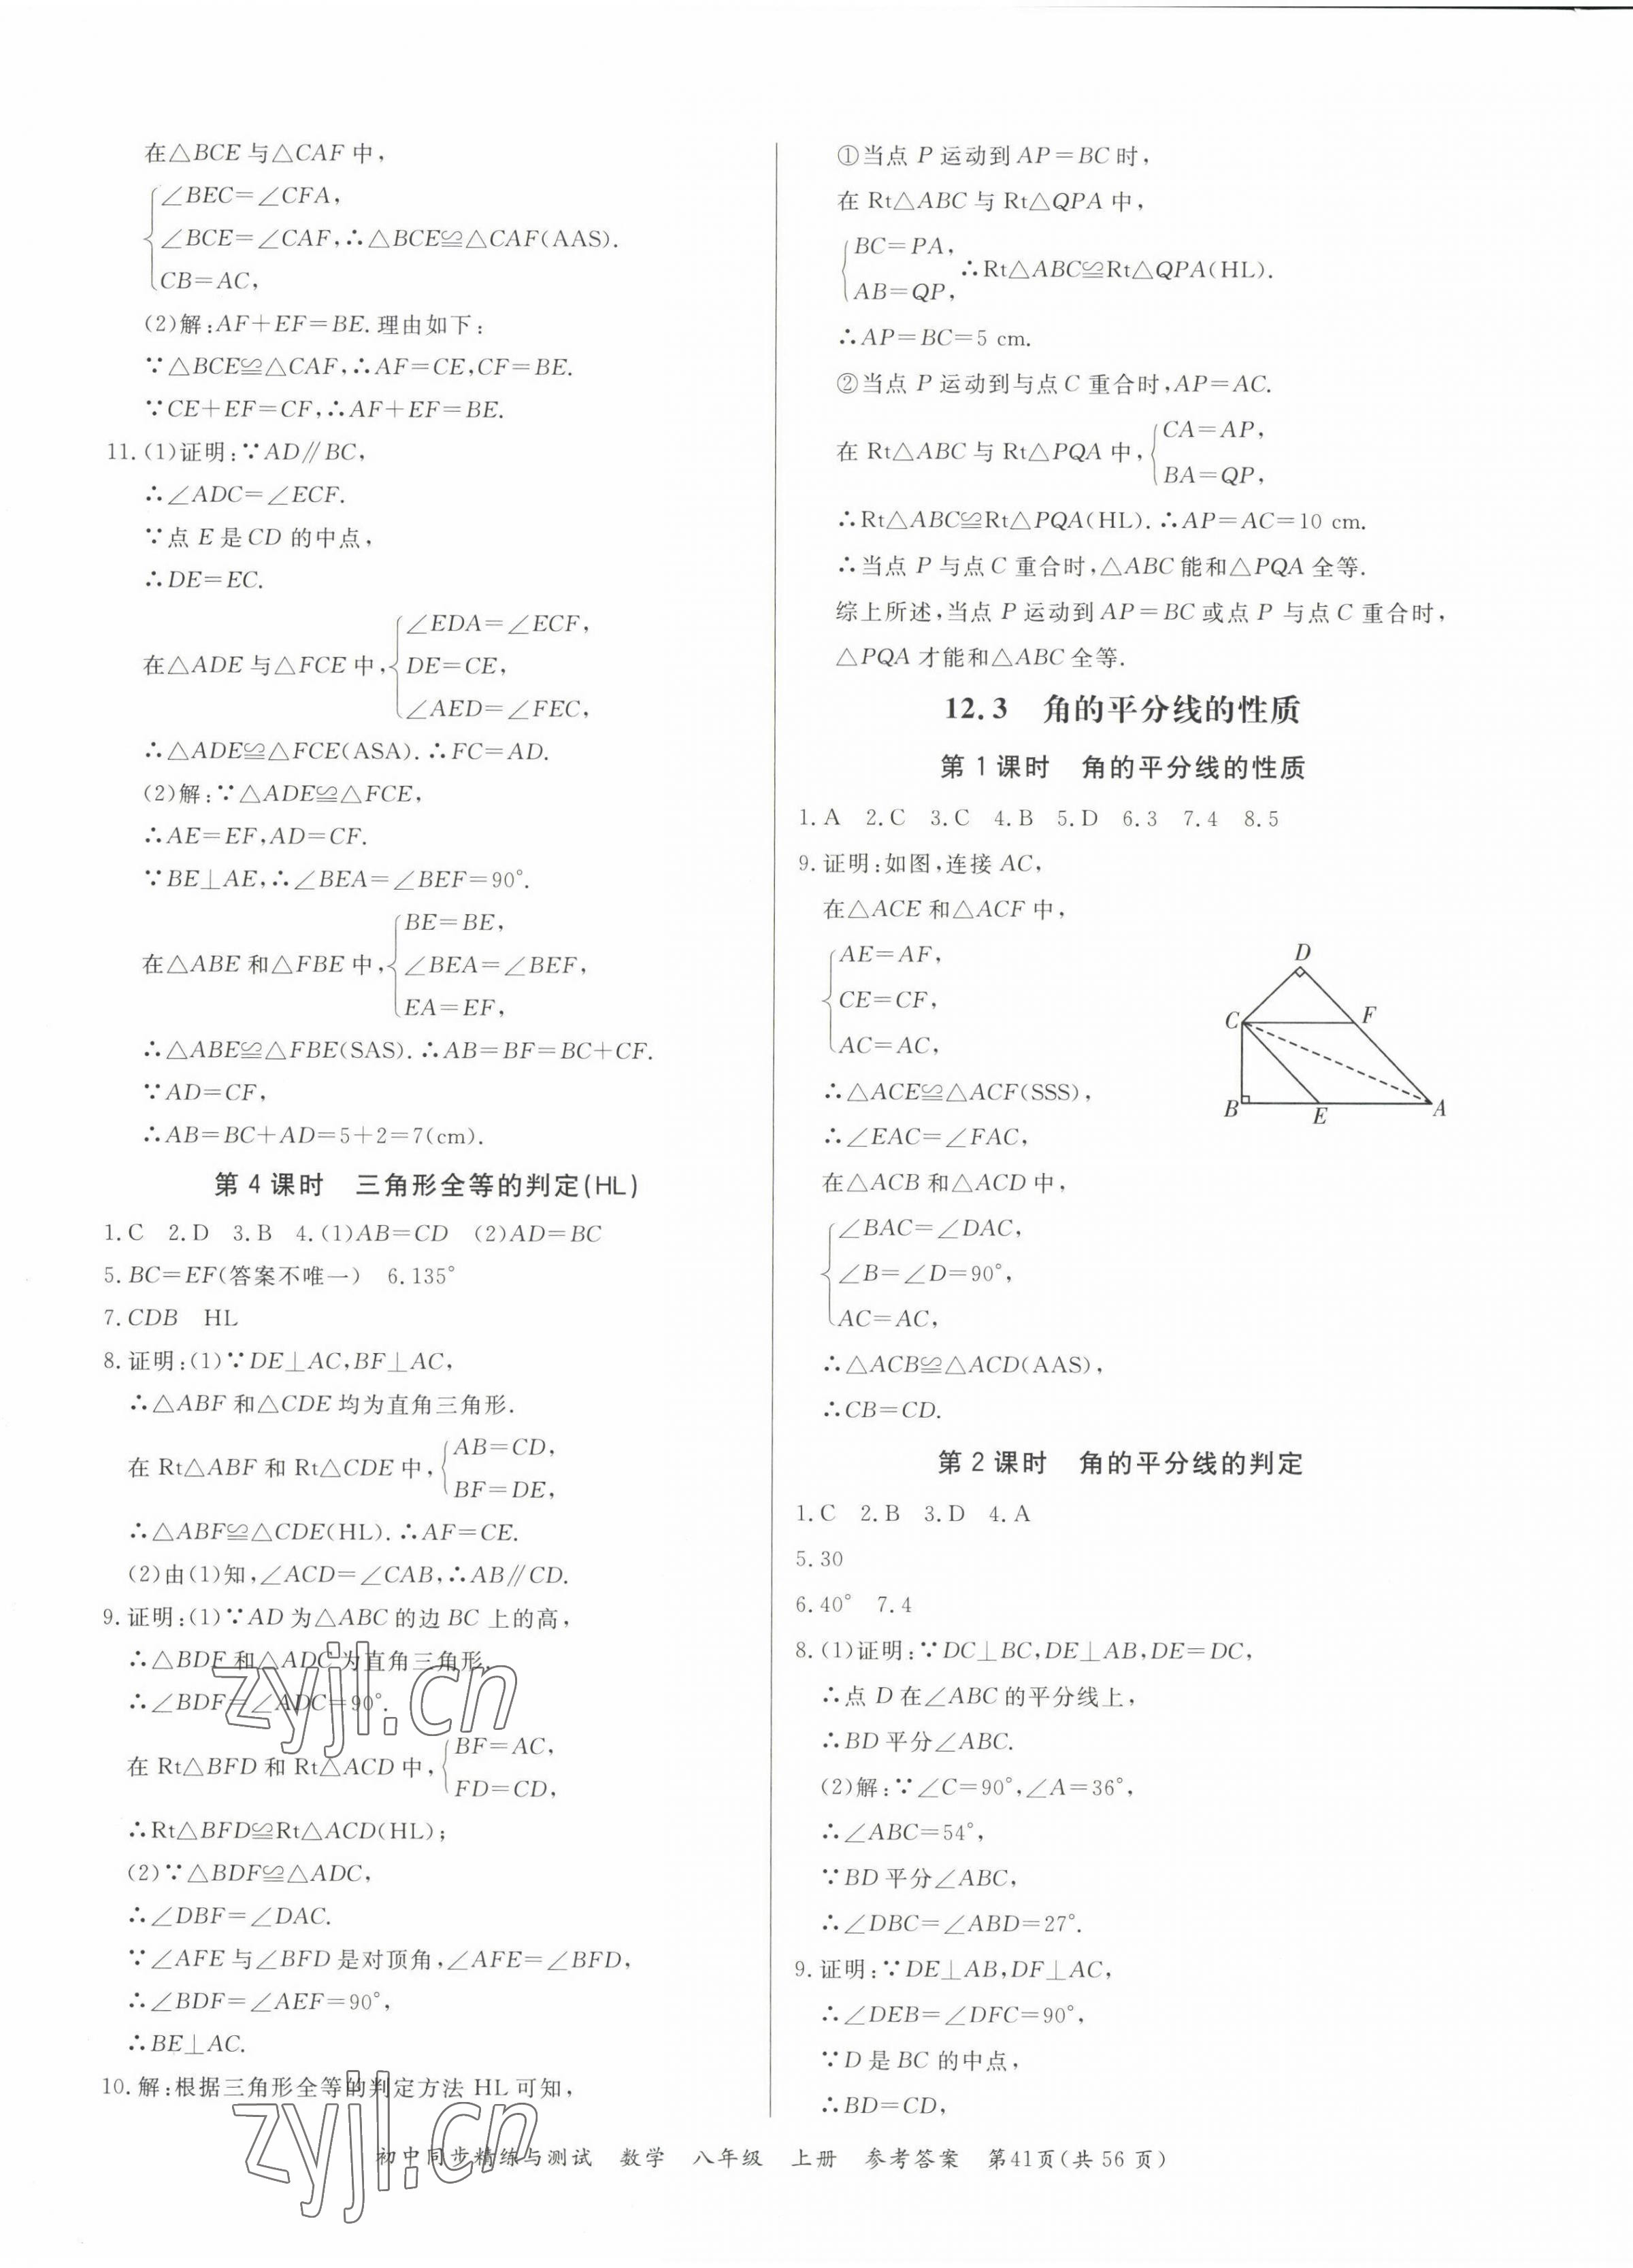 在△BCE与△CAF中，
∠BEC=∠CFA，
∠BCE=∠CAF，∴△BCE≌△CAF(AAS).
CB=AC，
(2)解：AF+EF=BE.理由如下：
∵△BCE≌△CAF，∴AF=CE，CF=BE.
∵CE+EF=CF，∴AF+EF=BE.
11.(1)证明：∵AD∥BC，
∴∠ADC=∠ECF.
∵点E是CD的中点，
∴DE=EC.
∠EDA=∠ECF，
在△ADE与△FCE中，DE=CE，
∠AED=∠FEC，
∴△ADE≌△FCE(ASA).∴FC=AD.
(2)解：∵△ADE≌△FCE，
∴AE=EF，AD=CF.
∵BE⊥AE，∴∠BEA=∠BEF=90°.
BE=BE，
在△ABE和△FBE中，∠BEA=∠BEF，
EA=EF，
∴△ABE≌△FBE(SAS).∴AB=BF=BC+CF.
∵AD=CF，
∴AB=BC+AD=5+2=7(cm).
第4课时 三角形全等的判定(HL)
1.C 2.D 3.B 4.(1)AB=CD (2)AD=BC
5.BC=EF(答案不唯一) 6.135°
7.CDB HL
8.证明：(1)∵DE⊥AC，BF⊥AC，
∴△ABF和△CDE均为直角三角形.
在Rt△ABF和Rt△CDE中，AB=CD，
BF=DE，
∴△ABF≌△CDE(HL).∴AF=CE.
(2)由(1)知，∠ACD=∠CAB，∴AB∥CD.
9.证明：(1)∵AD为△ABC的边BC上的高，
∴△BDF和△ADC为直角三角形，
∴∠BDF=∠ADC=90°.
在Rt△BFD和Rt△ACD中，BF=AC，
FD=CD，
∴Rt△BFD≌Rt△ACD(HL)；
(2)∵△BDF≌△ADC，
∴∠DBF=∠DAC.
∵∠AFE与∠BFD是对顶角，∠AFE=∠BFD，
∴∠BDF=∠AEF=90°，
∴BE⊥AC.
10.解：根据三角形全等的判定方法HL可知，
①当点P运动到AP=BC时，
在Rt△ABC与Rt△QPA中，
BC=PA，
∴Rt△ABC≌Rt△QPA(HL).
AB=QP，
∴AP=BC=5 cm.
②当点P运动到与点C重合时，AP=AC.
在Rt△ABC与Rt△PQA中，CA=AP，
BA=QP，
∴Rt△ABC≌Rt△PQA(HL).∴AP=AC=10 cm.
∴当点P与点C重合时，△ABC能和△PQA全等.
综上所述，当点P运动到AP=BC或点P与点C重合时，
△PQA才能和△ABC全等.
12.3 角的平分线的性质
第1课时 角的平分线的性质
1.A 2.C 3.C 4.B 5.D 6.3 7.4 8.5
9.证明：如图，连接AC，
在△ACE和△ACF中，
AE=AF，
CE=CF，
AC=AC，
∴△ACE≌△ACF(SSS)，
∴∠EAC=∠FAC，
在△ACB和△ACD中，
∠BAC=∠DAC，
∠B=∠D=90°，
AC=AC，
∴△ACB≌△ACD(AAS)，
∴CB=CD.
D
C
F
B
E
A
第2课时 角的平分线的判定
1.C 2.B 3.D 4.A
5.30
6.40° 7.4
8.(1)证明：∵DC⊥BC，DE⊥AB，DE=DC，
∴点D在∠ABC的平分线上，
∴BD平分∠ABC.
(2)解：∵∠C=90°，∠A=36°，
∴∠ABC=54°，
∵BD平分∠ABC，
∴∠DBC=∠ABD=27°.
9.证明：∵DE⊥AB，DF⊥AC，
∴∠DEB=∠DFC=90°，
∵D是BC的中点，
∴BD=CD，
zyjl.cn
zyjl.cn
初中同步精练与测试 数学 八年级 上册 参考答案 第41页(共56页)